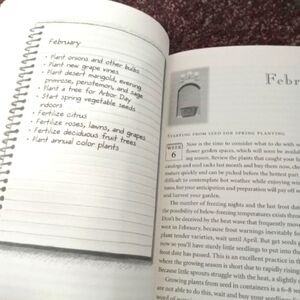 February
• Plant onions and other bulbs
• Plant new grape vines
• Plant desert marigold, evening
primrose, penstemon, and sage
• Plant a tree for Arbor Day
• Start spring vegetable seeds
indoors
• Fertilize citrus
• Fertilize roses, lawns, and grapes
• Fertilize deciduous fruit trees
• Plant annual color plants
Febr
STARTING FROM SEED FOR SPRING PLANTING
WEEK
6
Now is the time to consider what to do with
flower garden spaces, which will soon be
ing season. Review the plants that caught your
catalogs and seed racks last month, and buy them now
mature quickly and can be picked before the hottest part
difficult to contemplate hot weather while enjoying
tures, but your anticipation and preparation will pay off
and harvest your garden.
The number of freezing nights and the hot
the possibility of below-freezing temperatures exists
Don't be deceived by the heat wave that frequently
went in February, because frost warnings inevitably
plant tender varieties, wait until April. But get seeds
now so you'll have sturdy little seedlings to put into the
frost date has passed. This is an excellent practice in
where the growing season is short due to rapidly rising
Because little sprouts struggle with the heat, a slight
Growing plants from seed in containers is 6 to
are not able to do this, wait and buy transplants